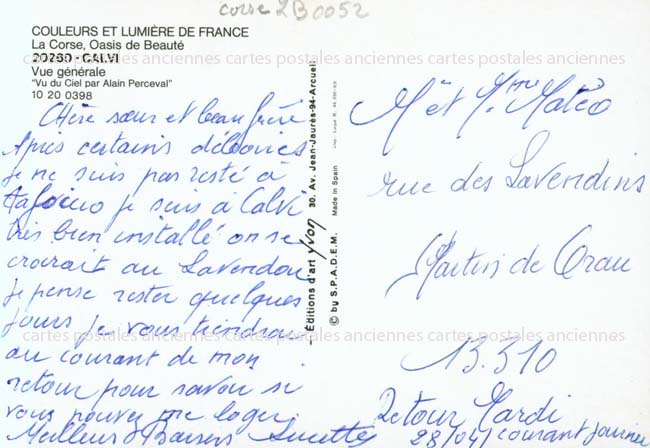 corse 2B0052
COULEURS ET LUMIÈRE DE FRANCE
La Corse, Oasis de Beauté
20260 - CALVI
Vue générale
"Vu du Ciel par Alain Perceval"
10 20 0398
Chère sœur et beau frère
Après certains déboires
je ne suis pas resté à
je suis à Calvi
très bien installé on se
croirait au Lavendou
je pense rester quelques
jours je vous tiendrai
au courant de mon
retour pour savoir si
vous pouvez me loger
Meilleurs Baisers Lucette
— Éditions d'art yvon 30, Av. Jean-Jaurès-94-Arcueil
© by S.P.A.D.E.M. Made in Spain
M et Mme Matéo
rue des Lavendins
Martin de Crau
13.310
Retour Mardi
28/04 courant journée
cartes postales anciennes cartes postales anciennes cartes postales anciennes
cartes postales anciennes cartes postales anciennes cartes postales anciennes